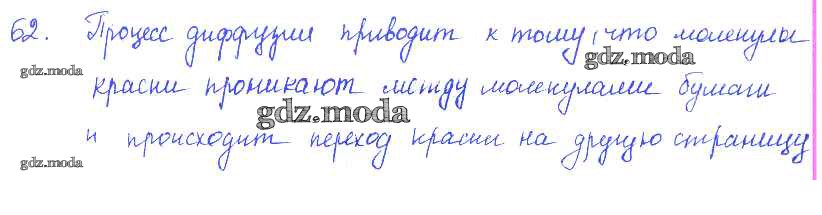 62. Процесс диффузии приводит к тому, что молекулы
gdz.moda
gdz.moda
краски проникают между молекулами бумаги
gdz.moda
и происходит переход краски на другую страницу
gdz.moda